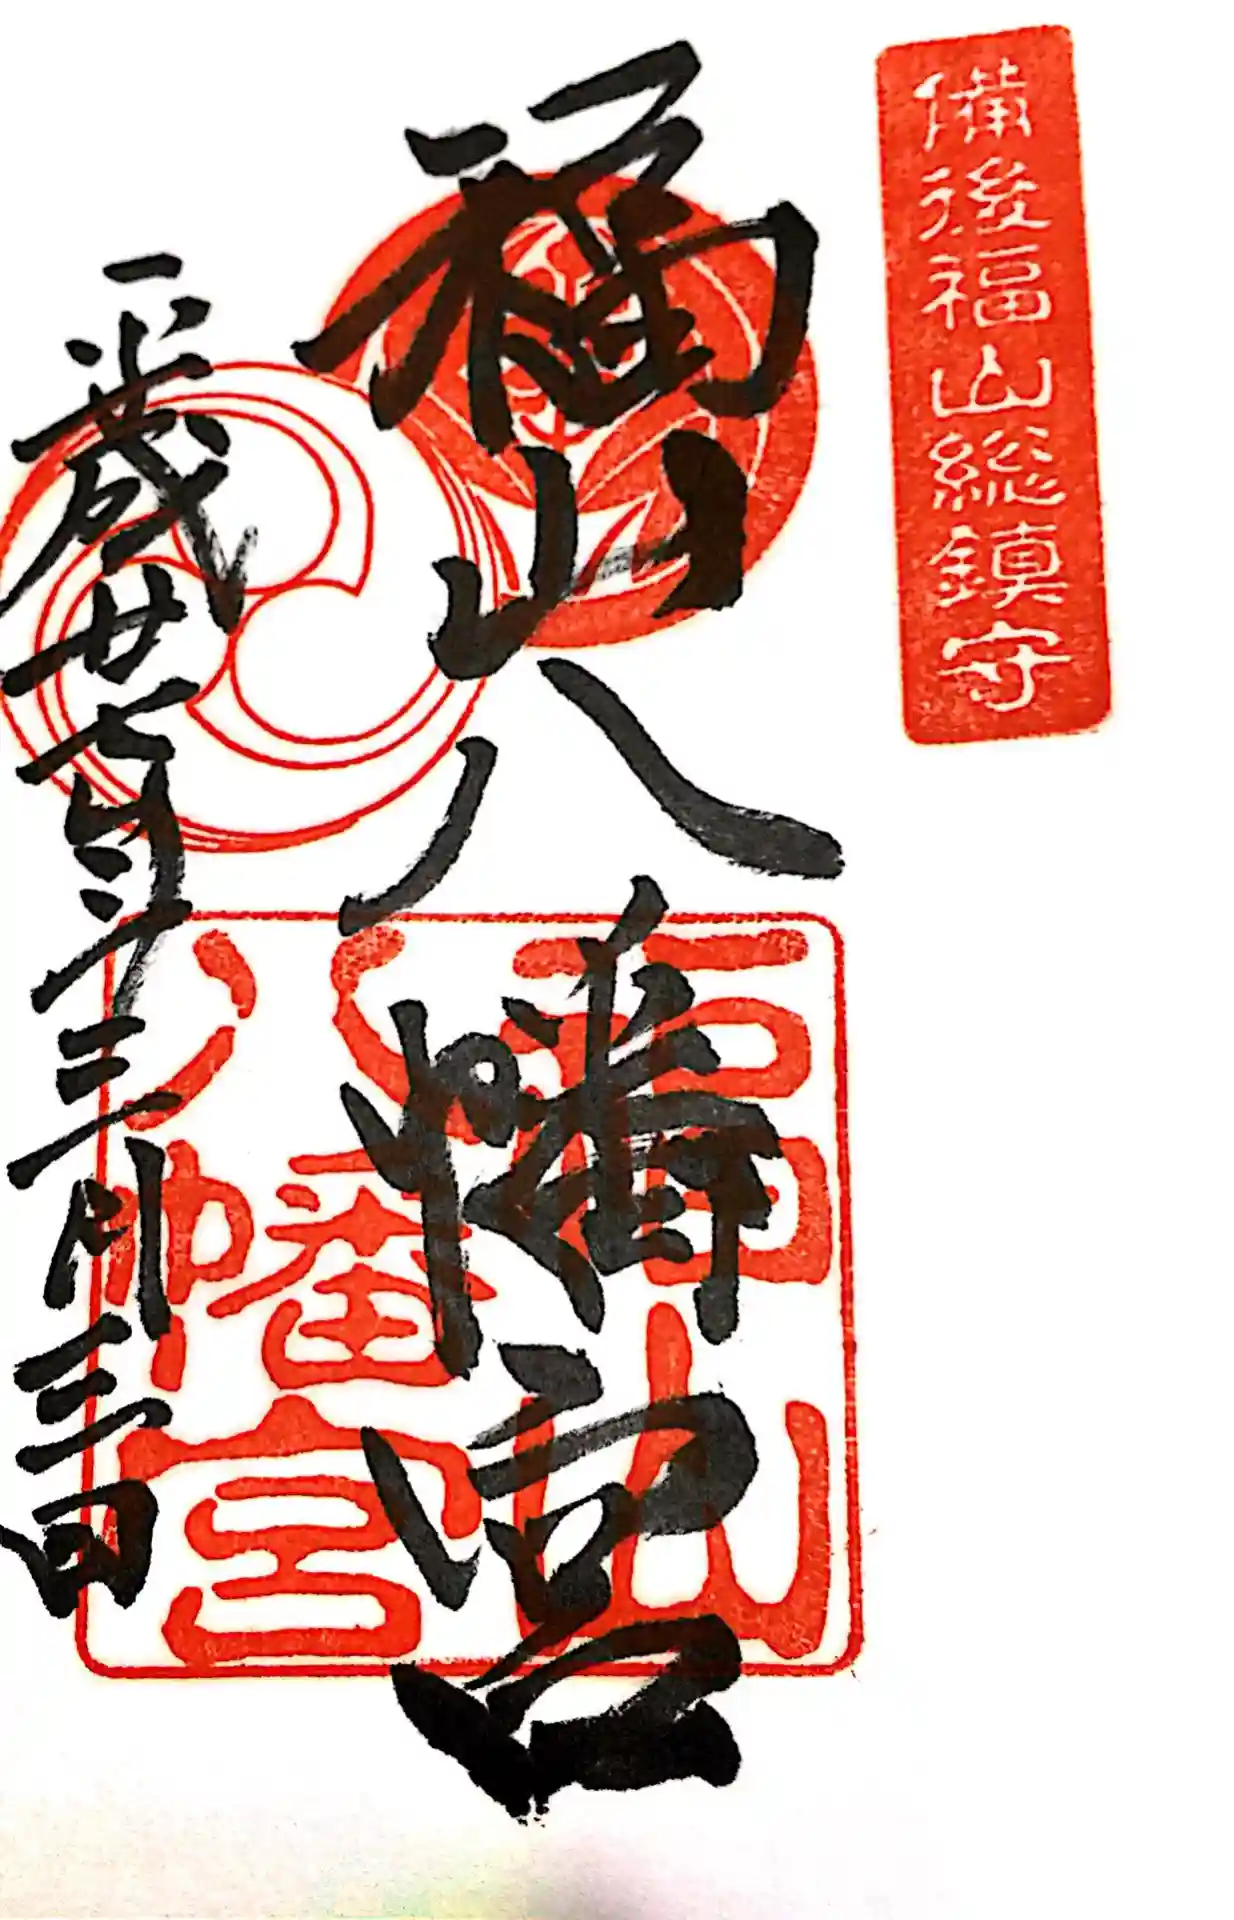 備後福山総鎮守
福山八幡宮
福山
八幡宮
平成廿七年三月三日